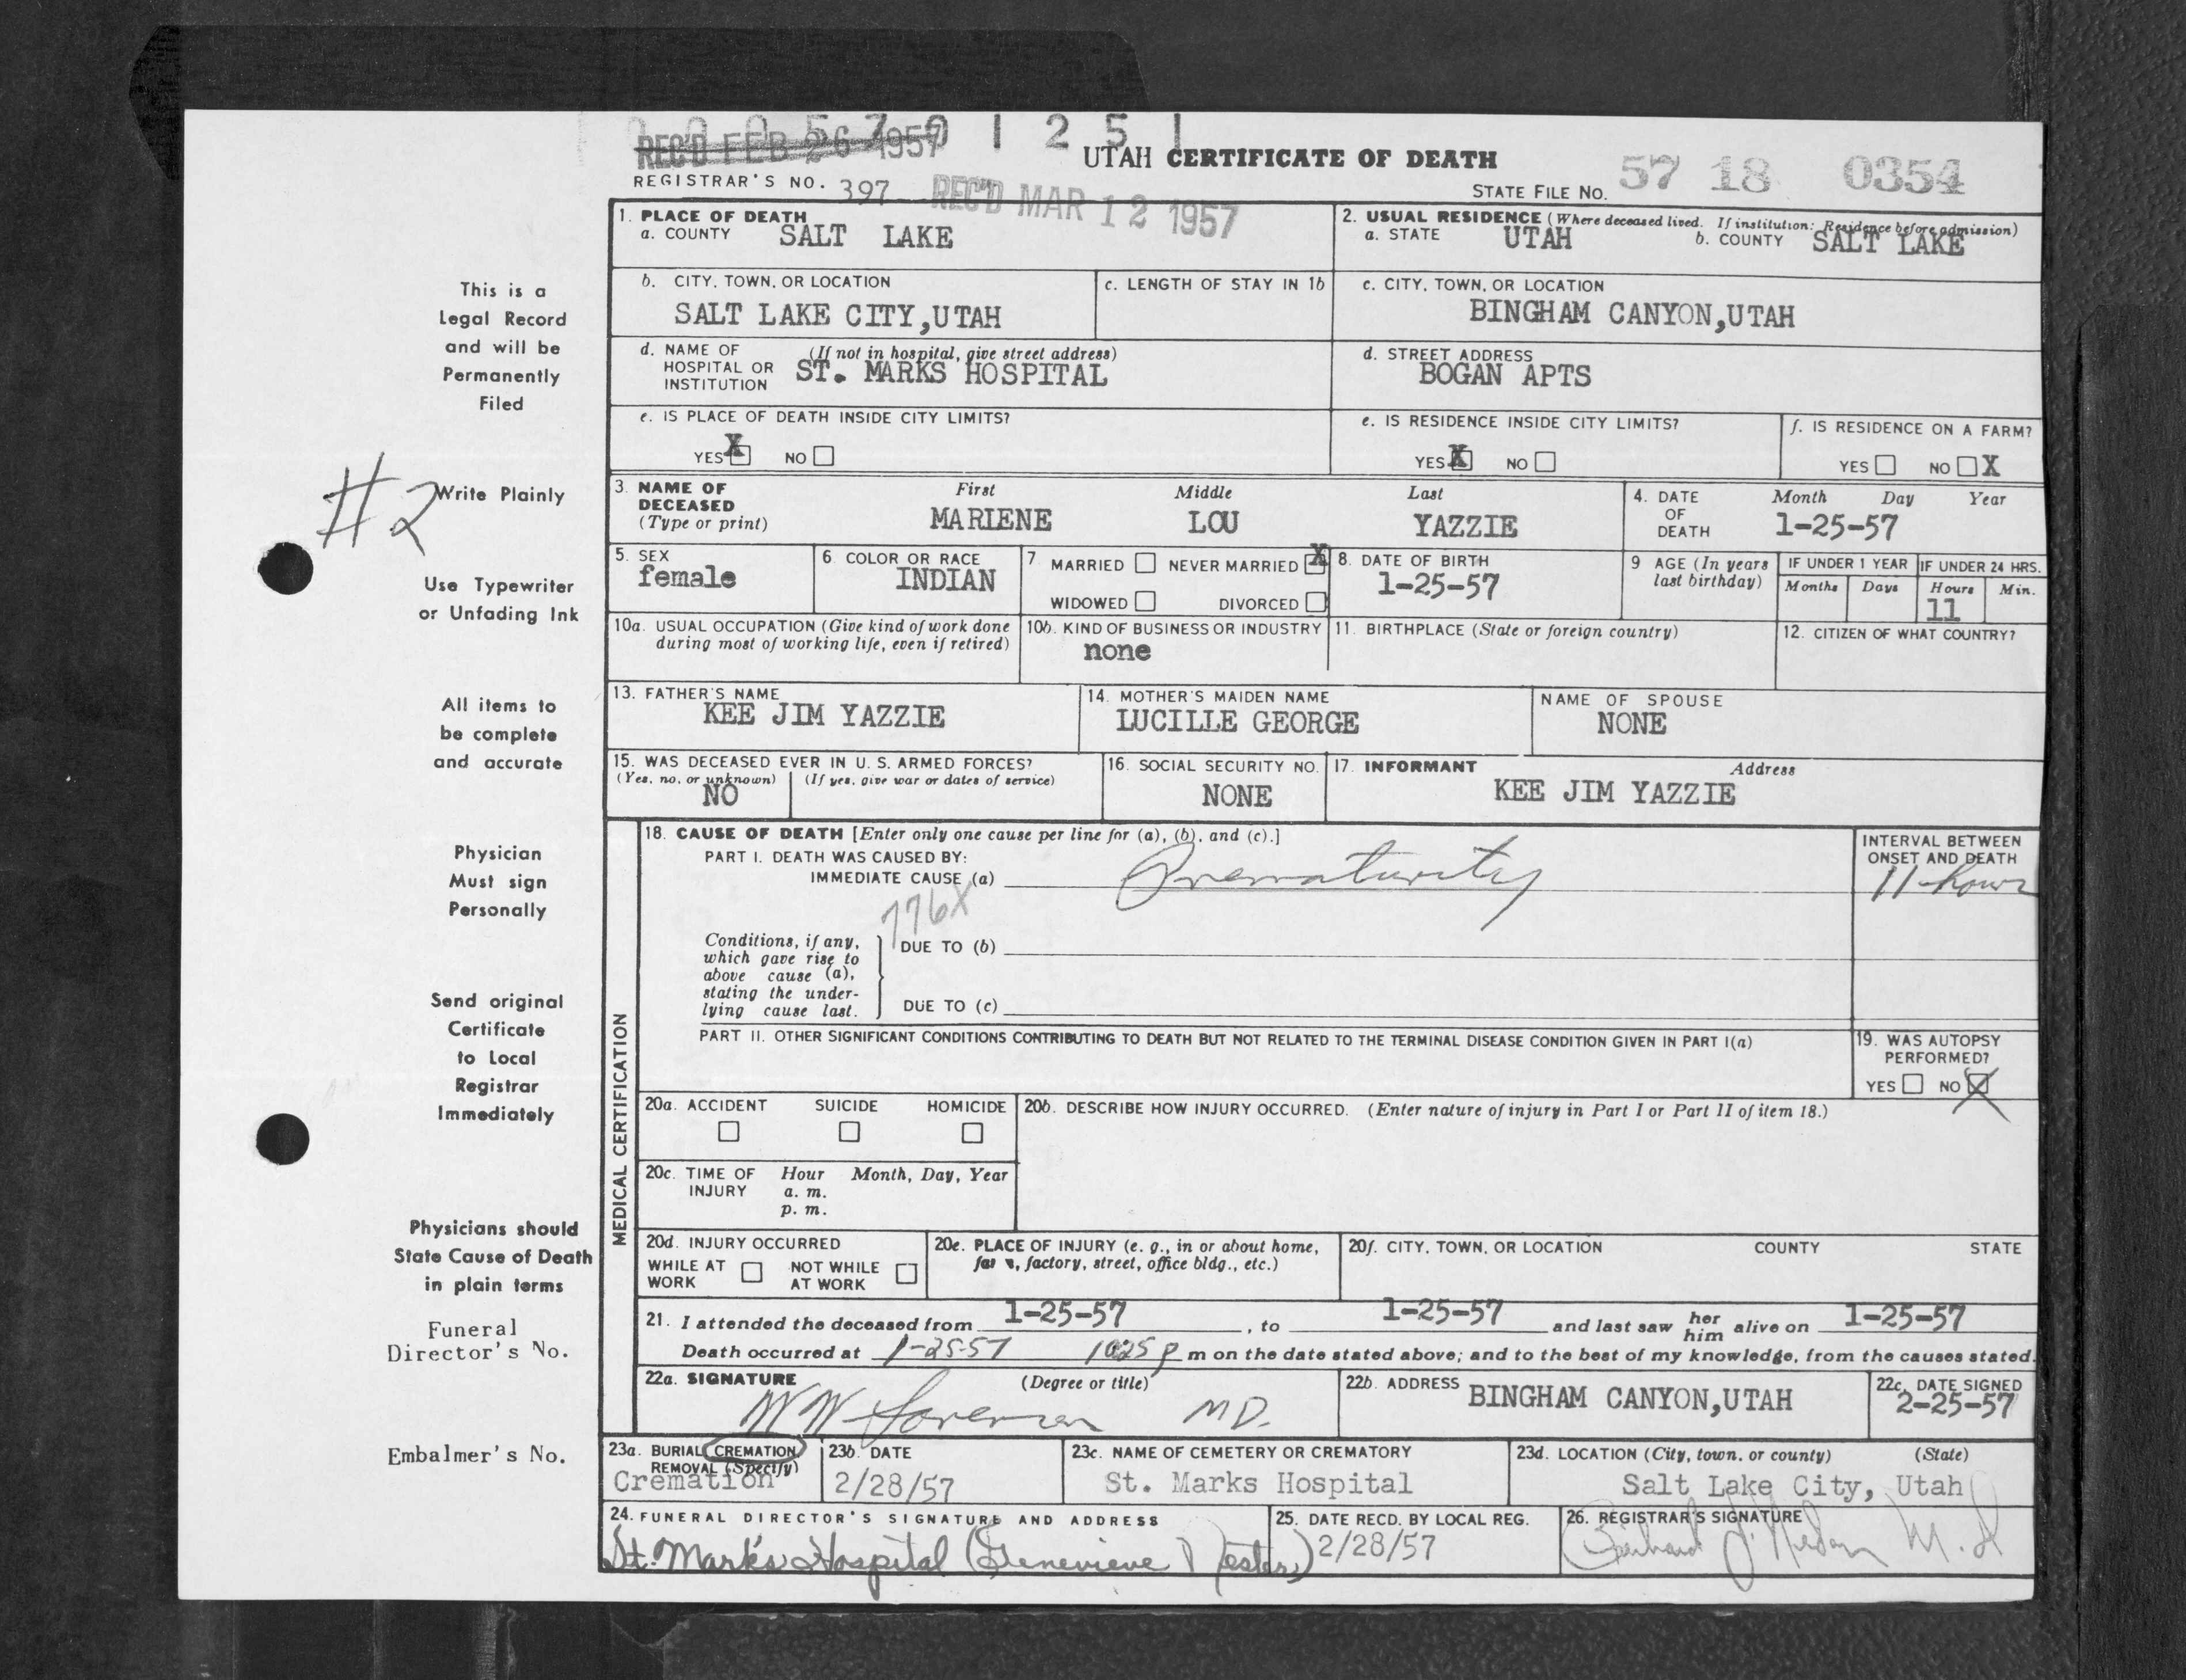 REC'D FEB 26 1957
UTAH CERTIFICATE OF DEATH
REGISTRAR'S NO. 397
REC'D MAR 12 1957
STATE FILE NO. 57 18 0354
1. PLACE OF DEATH
a. COUNTY SALT LAKE
2. USUAL RESIDENCE (Where deceased lived. If institution: Residence before admission)
a. STATE UTAH b. COUNTY SALT LAKE
b. CITY, TOWN, OR LOCATION
SALT LAKE CITY, UTAH
c. LENGTH OF STAY IN 1b
c. CITY, TOWN, OR LOCATION
BINGHAM CANYON, UTAH
d. NAME OF HOSPITAL OR INSTITUTION (If not in hospital, give street address)
ST. MARKS HOSPITAL
d. STREET ADDRESS
BOGAN APTS
e. IS PLACE OF DEATH INSIDE CITY LIMITS?
YES X NO
e. IS RESIDENCE INSIDE CITY LIMITS?
YES X NO
f. IS RESIDENCE ON A FARM?
YES NO X
3. NAME OF DECEASED (Type or print)
First Middle Last
MARIENE LOU YAZZIE
4. DATE OF DEATH Month Day Year
1-25-57
5. SEX
female
6. COLOR OR RACE
INDIAN
7 MARRIED NEVER MARRIED X
WIDOWED DIVORCED
8. DATE OF BIRTH
1-25-57
9 AGE (In years last birthday)
IF UNDER 1 YEAR
Months Days
IF UNDER 24 HRS.
Hours Min.
11
10a. USUAL OCCUPATION (Give kind of work done during most of working life, even if retired)
10b. KIND OF BUSINESS OR INDUSTRY
none
11. BIRTHPLACE (State or foreign country)
12. CITIZEN OF WHAT COUNTRY?
13. FATHER'S NAME
KEE JIM YAZZIE
14. MOTHER'S MAIDEN NAME
LUCILLE GEORGE
NAME OF SPOUSE
NONE
15. WAS DECEASED EVER IN U. S. ARMED FORCES?
(Yes, no, or unknown) (If yes, give war or dates of service)
NO
16. SOCIAL SECURITY NO.
NONE
17. INFORMANT Address
KEE JIM YAZZIE
MEDICAL CERTIFICATION
18. CAUSE OF DEATH [Enter only one cause per line for (a), (b), and (c).]
PART I. DEATH WAS CAUSED BY:
IMMEDIATE CAUSE (a) Prematurity
776X
INTERVAL BETWEEN ONSET AND DEATH
11 hours
Conditions, if any, which gave rise to above cause (a), stating the underlying cause last.
DUE TO (b)
DUE TO (c)
PART II. OTHER SIGNIFICANT CONDITIONS CONTRIBUTING TO DEATH BUT NOT RELATED TO THE TERMINAL DISEASE CONDITION GIVEN IN PART I(a)
19. WAS AUTOPSY PERFORMED?
YES NO X
20a. ACCIDENT SUICIDE HOMICIDE
20b. DESCRIBE HOW INJURY OCCURRED. (Enter nature of injury in Part I or Part II of item 18.)
20c. TIME OF INJURY Hour Month, Day, Year
a. m.
p. m.
20d. INJURY OCCURRED
WHILE AT WORK NOT WHILE AT WORK
20e. PLACE OF INJURY (e. g., in or about home, farm, factory, street, office bldg., etc.)
20f. CITY, TOWN, OR LOCATION COUNTY STATE
21. I attended the deceased from 1-25-57, to 1-25-57 and last saw her him alive on 1-25-57
Death occurred at 1-25-57 1025 p m on the date stated above; and to the best of my knowledge, from the causes stated.
22a. SIGNATURE (Degree or title)
MD.
22b. ADDRESS
BINGHAM CANYON, UTAH
22c. DATE SIGNED
2-25-57
23a. BURIAL, CREMATION, REMOVAL (Specify)
Cremation
23b DATE
2/28/57
23c. NAME OF CEMETERY OR CREMATORY
St. Marks Hospital
23d. LOCATION (City, town, or county) (State)
Salt Lake City, Utah
24. FUNERAL DIRECTOR'S SIGNATURE AND ADDRESS
St. Mark's Hospital (Genevieve
25. DATE RECD. BY LOCAL REG.
2/28/57
26. REGISTRAR'S SIGNATURE
This is a
Legal Record
and will be
Permanently
Filed
#2
Write Plainly
Use Typewriter
or Unfading Ink
All items to
be complete
and accurate
Physician
Must sign
Personally
Send original
Certificate
to Local
Registrar
Immediately
Physicians should
State Cause of Death
in plain terms
Funeral
Director's No.
Embalmer's No.